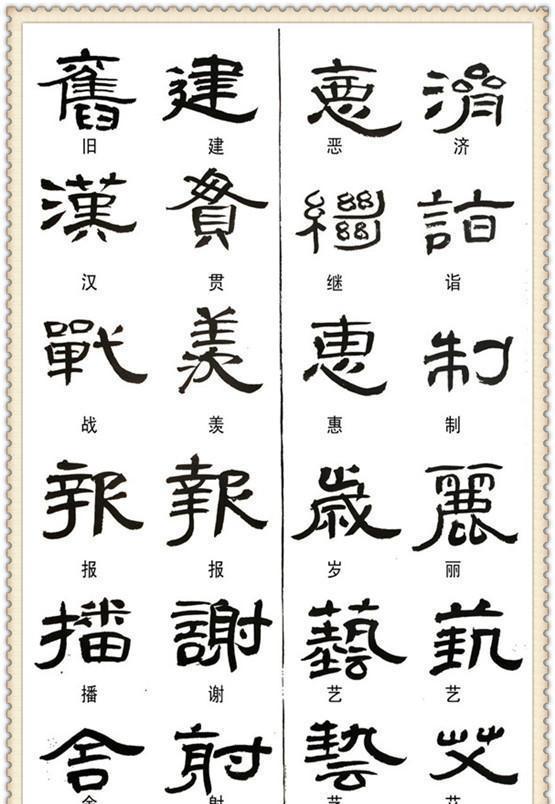 舊 建 惡 濟
旧 建 恶 济
漢 貫 繼 詣
汉 贯 继 诣
戰 羡 惠 制
战 羡 惠 制
報 報 歲 麗
报 报 岁 丽
播 謝 藝
播 谢 艺 艺
舍 射 艾